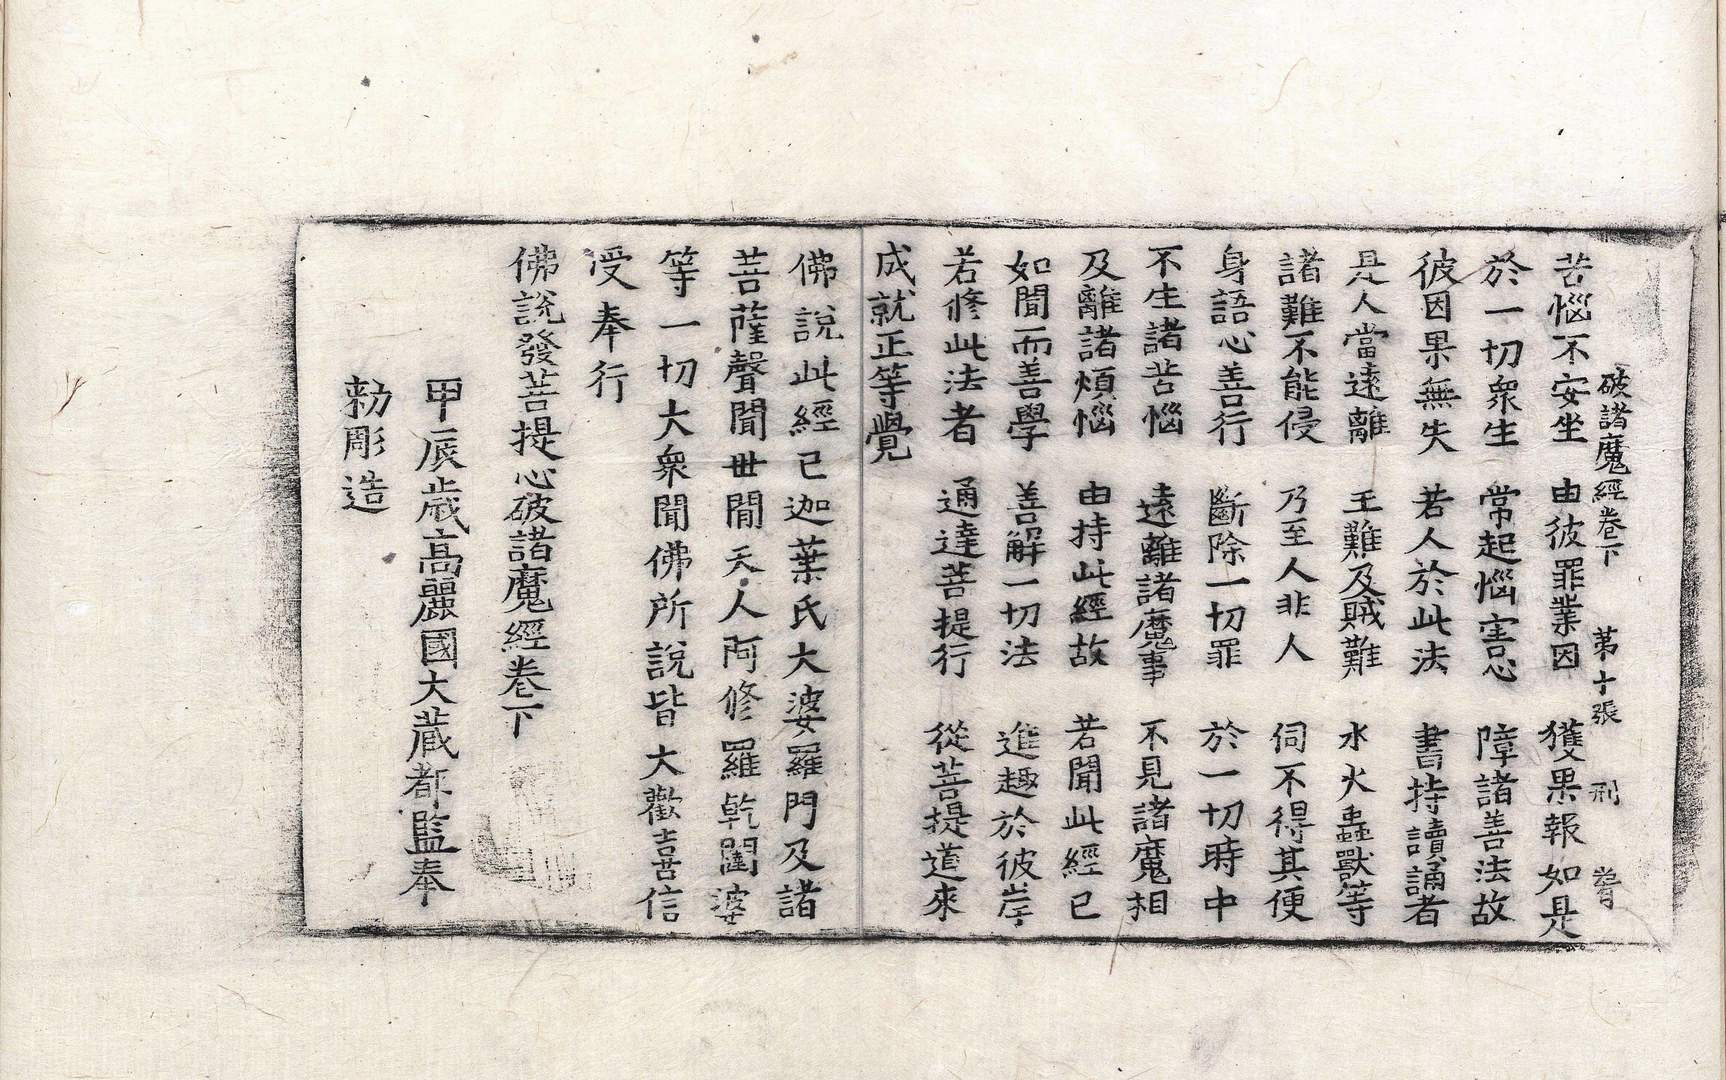 破諸魔經卷下 第十張 刑
苦惱不安坐 由彼罪業因 獲果報如是
於一切衆生 常起惱害心 障諸善法故
彼因果無失 若人於此法 書持讀誦者
是人當遠離 王難及賊難 水火蟲獸等
諸難不能侵 乃至人非人 伺不得其便
身語心善行 斷除一切罪 於一切時中
不生諸苦惱 遠離諸魔事 不見諸魔相
及離諸煩惱 由持此經故 若聞此經已
如聞而善學 善解一切法 進趣於彼岸
若修此法者 通達菩提行 從菩提道來
成就正等覺
佛說此經已迦葉氏大婆羅門及諸
菩薩聲聞世間天人阿修羅乾闥婆
等一切大衆聞佛所說皆大歡喜信
受奉行
佛說發菩提心破諸魔經卷下
甲辰歲高麗國大藏都監奉
勅彫造